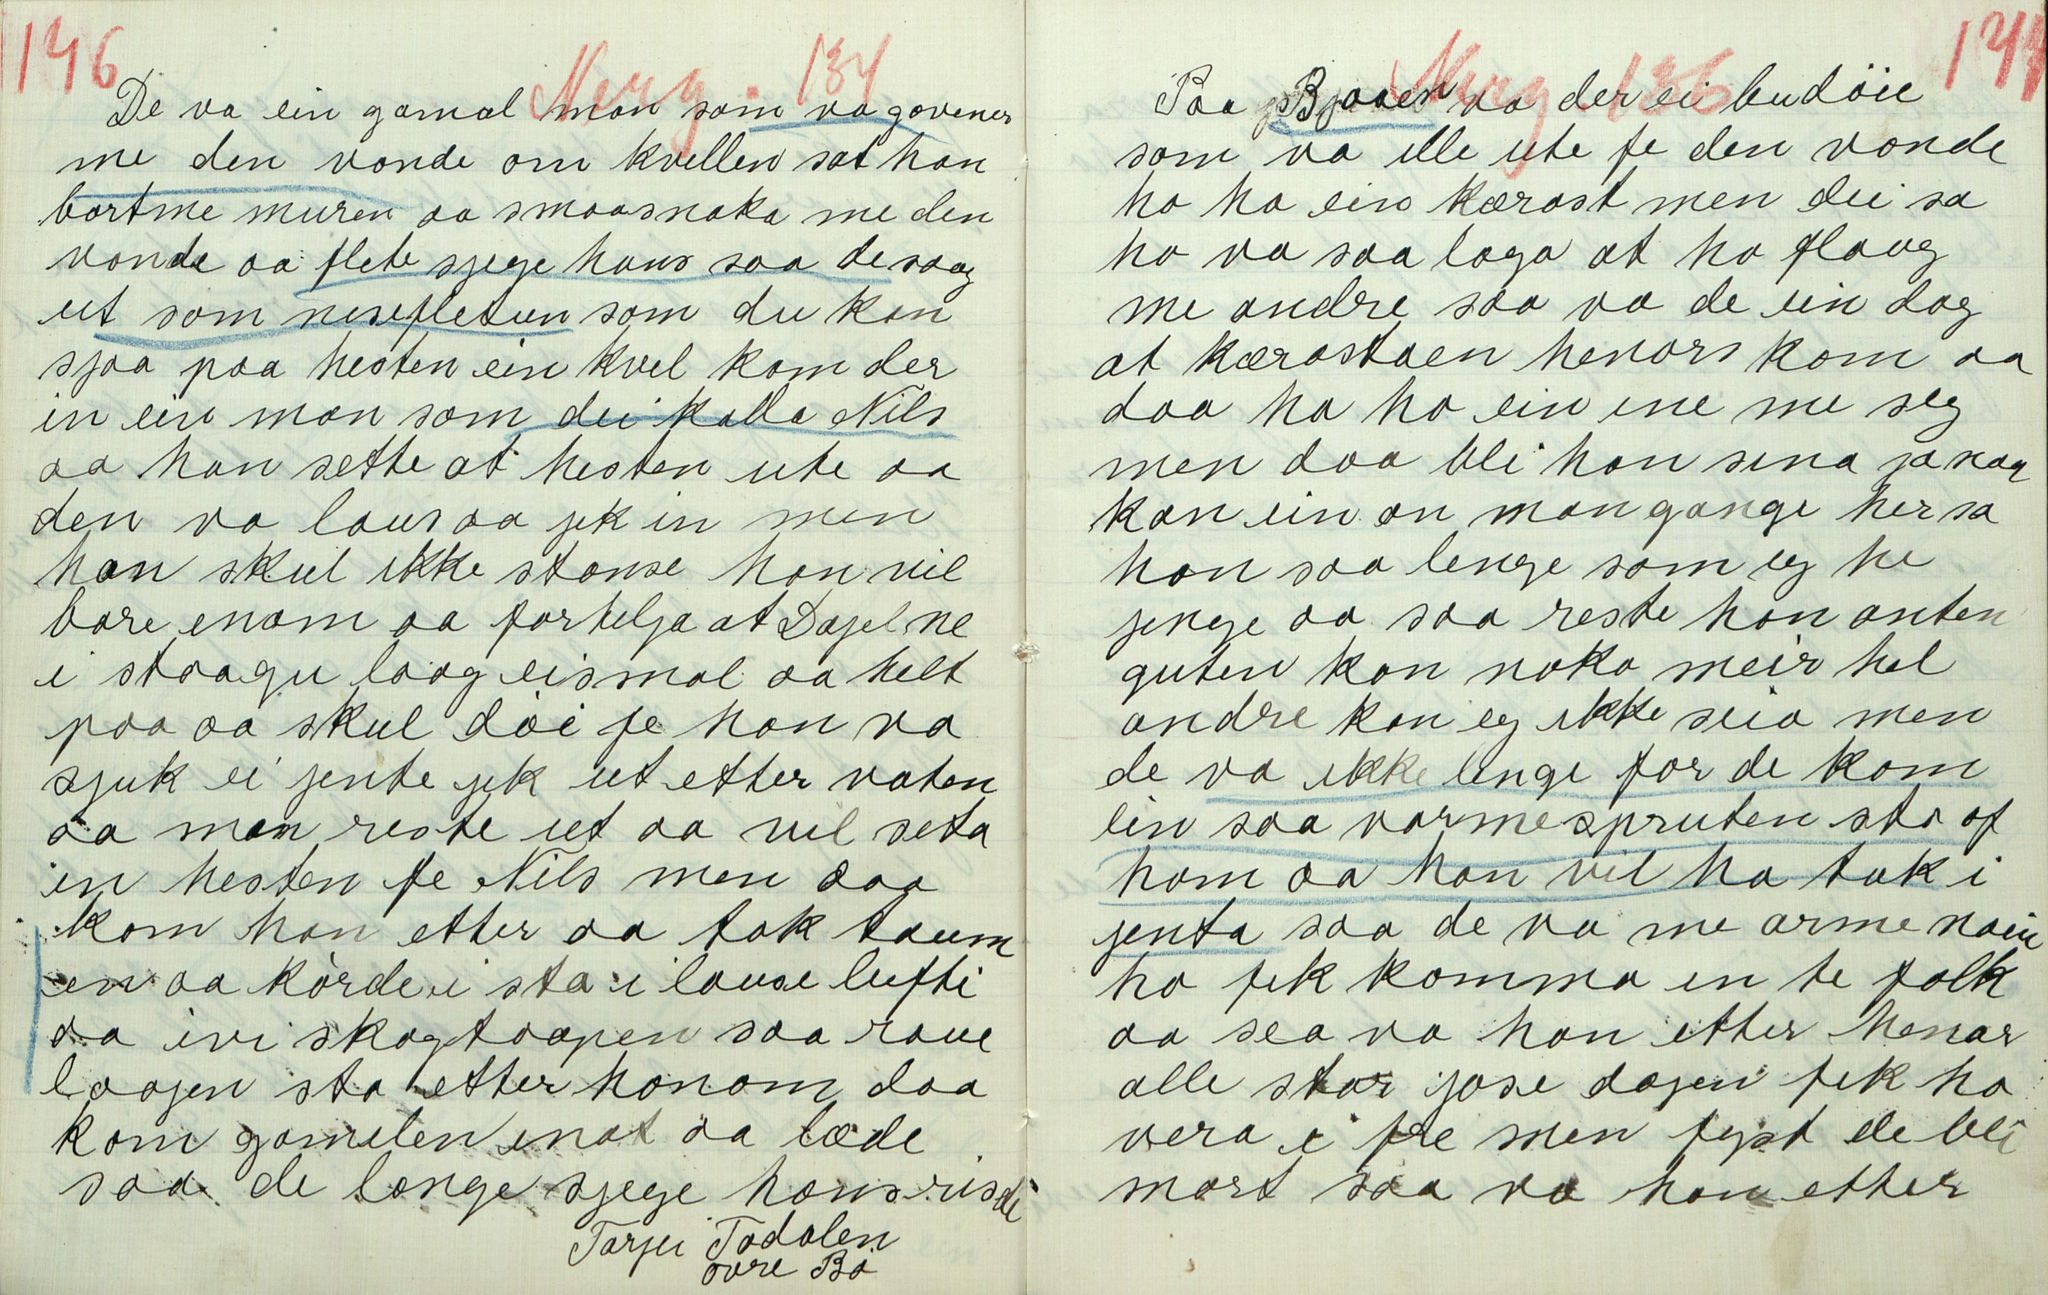 146
Nerg. 134
De va ein gamal man som va govener
me den vonde om kvellen sat han
bortme muren aa smaasnaka me den
vonde aa flete sjege hans saa de saag
ut som nisefletun som du kan
sjaa paa hesten ein kvel kom der
in ein man som dei kalla Nils
aa han sette at hesten ute aa
den va laus aa jek in men
han skul ikke stanse han vil
bare enom aa fortelja at Dajel ne
i staagu laag eismal aa helt
paa aa skul döi fe han va
sjuk ei jente jek ut etter vaten
aa man reste ut aa vil seta
in hesten fe Nils men daa
kom han etter aa tok taum
en aa körde i sta i lause lufti
aa ivi skogtaapen saa raue
laajen sto etter honom daa
kom gamelen inat aa læde
saa de lange sjege hans risde
Tarjei Todalen
övre Bö
147
Nerg 136
Paa Bjaaen va der ei budöie
som va ille ute fe den vonde
ho ha ein kærast men dei sa
ho va saa laga at ho flaug
me andre saa va de ein dag
at kærastaen henars kom aa
daa ha ho ein ine me seg
men daa bli han sina ja naar
kan ein an man gange her sa
han saa lenge som eg he
jenge aa saa reste han anten
guten kan noko meir hel
andre kan eg ikke seia men
de va ikke lenge for de kom
ein saa varmespruten sto af
hom aa han vil ha tak i
jenta saa de va me arme naiu
ho fek komma in te folk
aa sea va han etter henar
alle star jose dagen fek ho
vera i fre men fyst de bli
mort saa va han etter